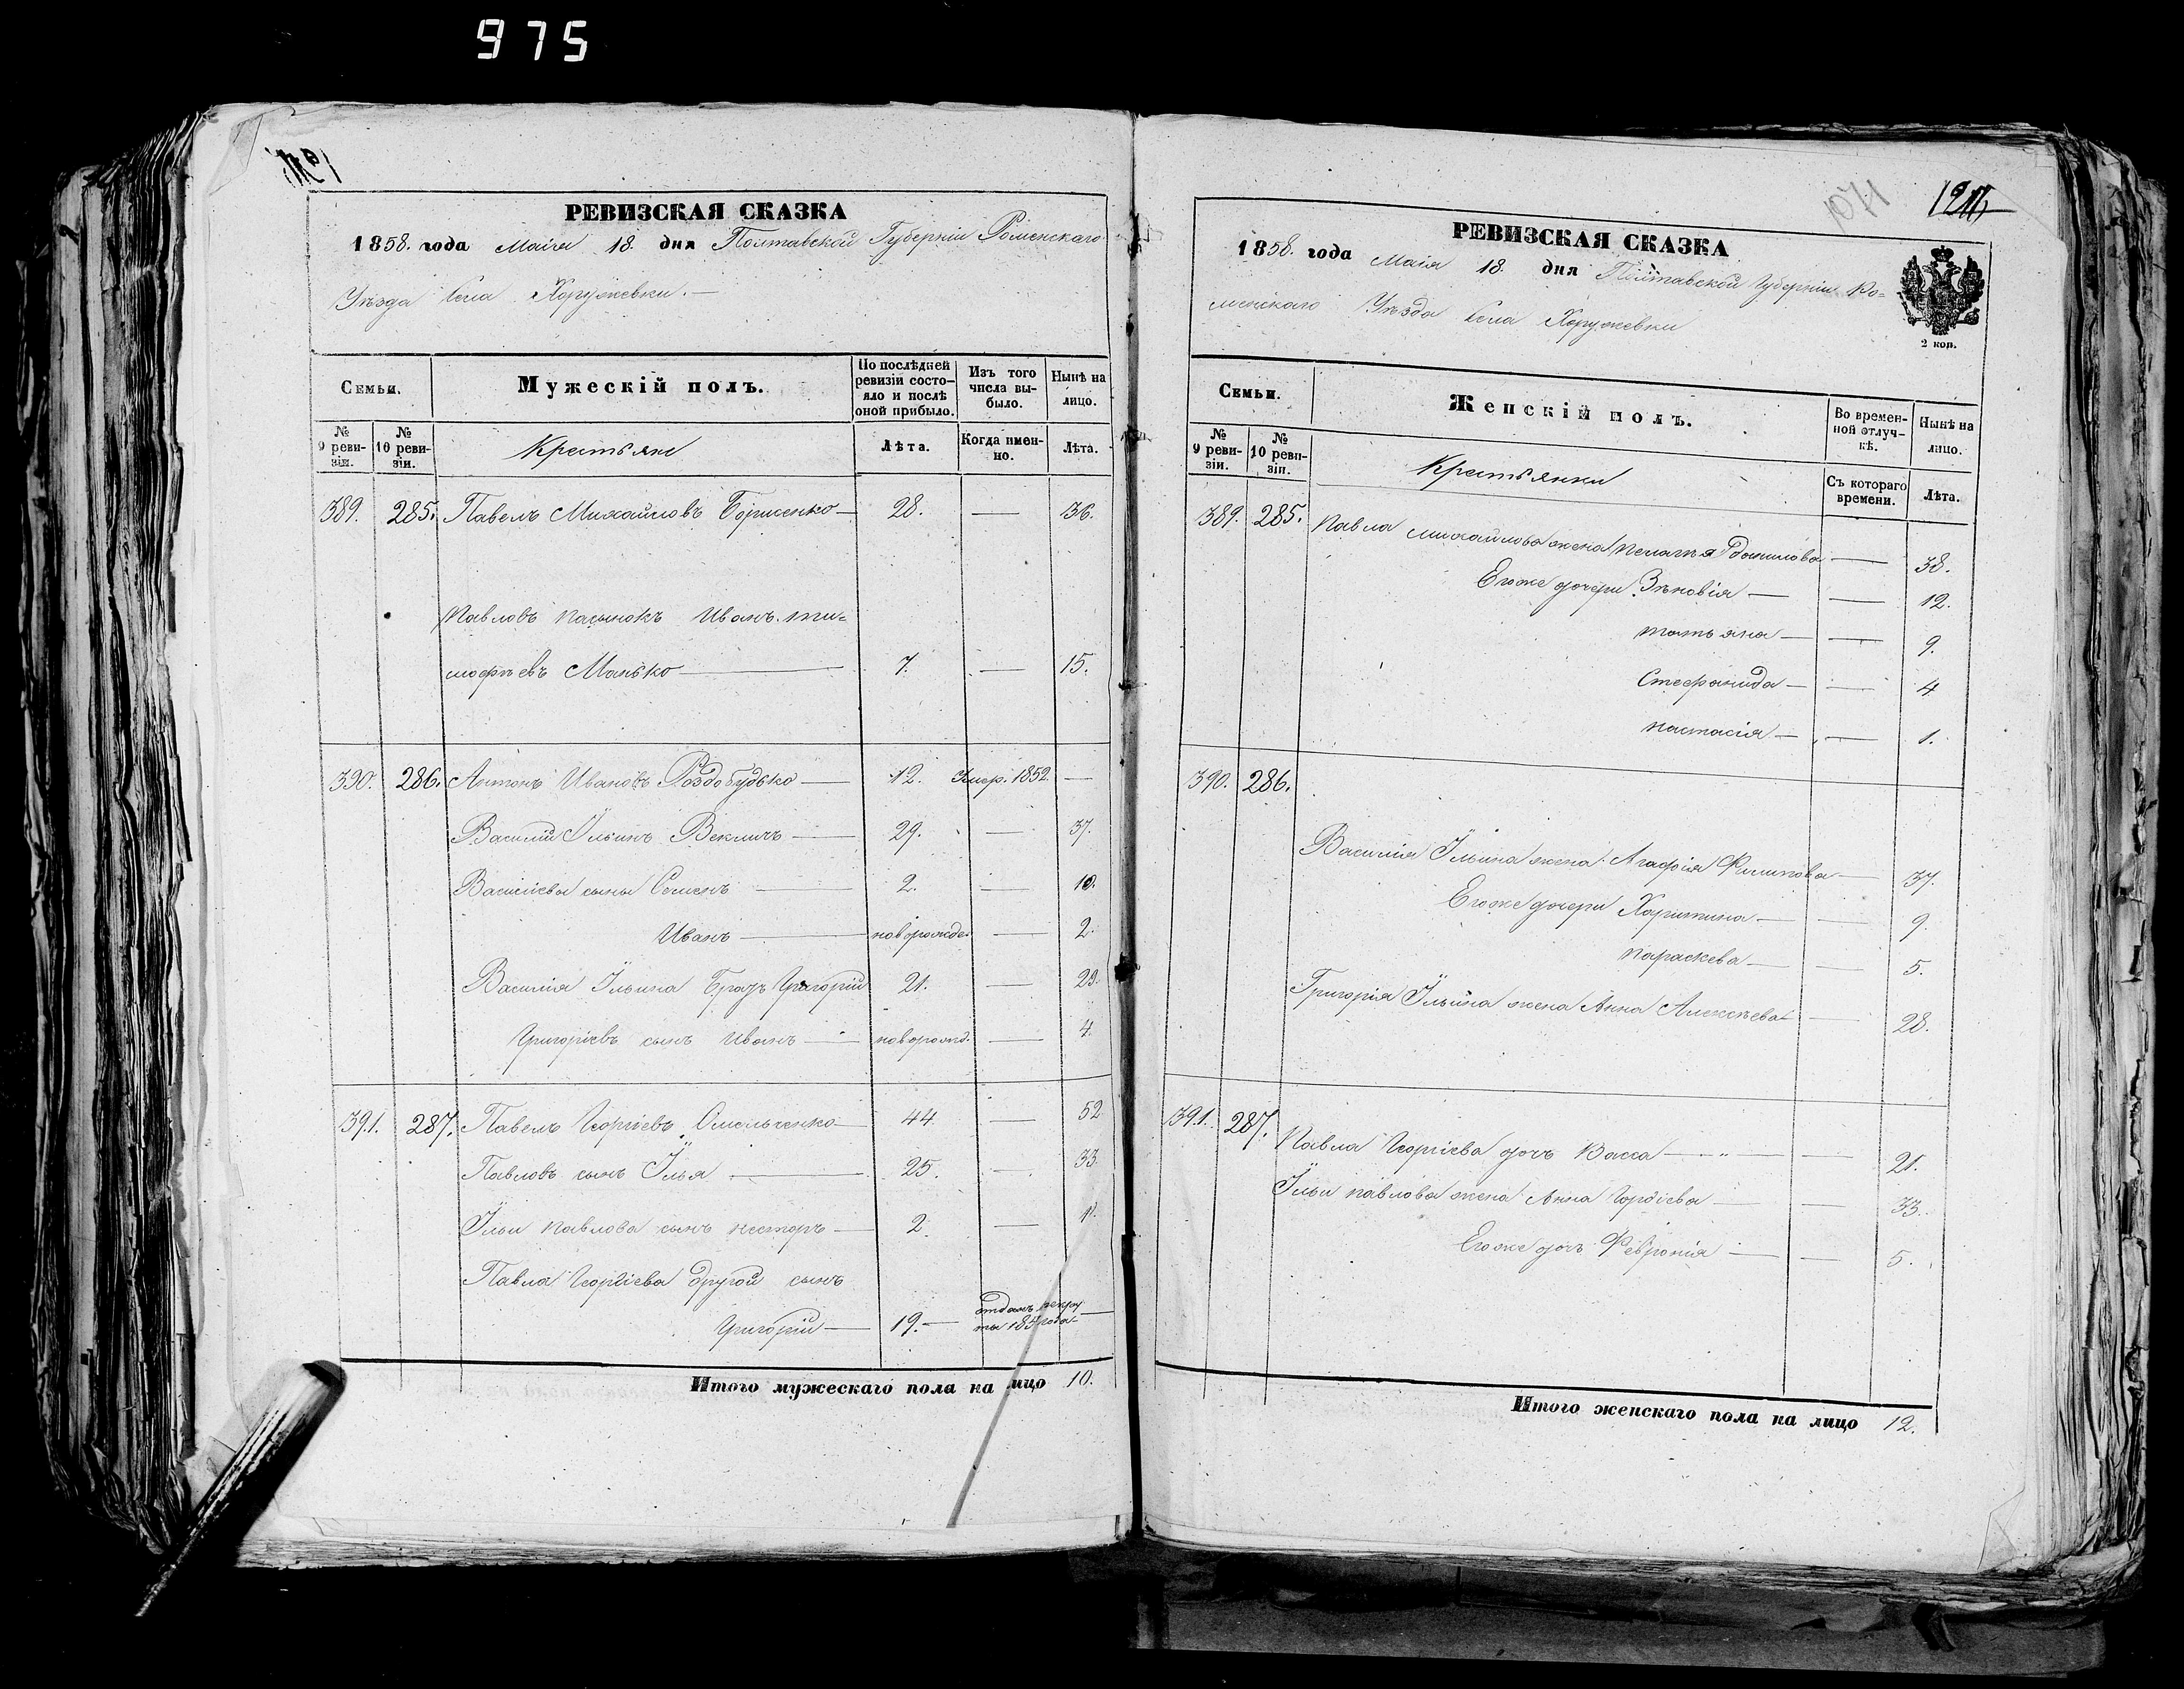 975
РЕВИЗСКАЯ СКАЗКА
1858. года Маія 18. дня Полтавской Губерніи Роменскаго
Уѣзда Села Хоружевки.—
Семьи.
Мужескій полъ.
По послѣдней ревизіи состояло и послѣ оной прибыло.
Изъ того числа выбыло.
Нынѣ на лицо.
№ 9 ревизіи.
№ 10 ревизіи.
Крестьяне
Лѣта.
Когда именно.
Лѣта.
389. 285. Павелъ Михайловъ Борисенко — 28. — 36.
Павловъ пасынокъ Иванъ ти=
мофѣевъ Манько — 7. — 15.
390. 286. Антонъ Ивановъ Роздобудько — 12. Умер. 1852. —
Василій Ильинъ Векличъ — 29. — 37.
Василіевы сыны Семенъ — 2. — 10.
Иванъ — новорожде. — 2.
Василія Ильина братъ Григорій 21. — 29.
Григоріевъ сынъ Иванъ — новорожд. — 4.
391. 287. Павелъ Георгіевъ Омельченко 44. — 52.
Павловъ сынъ Илья — 25. — 33.
Ильи Павлова сынъ нестеръ — 2. —
Павла Георгіева другой сынъ
Григорій — 19. — отданъ рекру
ты 185 года —
Итого мужескаго пола на лицо 10.
1071
РЕВИЗСКАЯ СКАЗКА
1858. года Маія 18. дня Полтавской Губерніи Ро=
менскаго Уѣзда Села Хоружевки
2 коп.
Семьи.
Женскій полъ.
Во временной отлучкѣ.
Нынѣ на лицо.
№ 9 ревизіи.
№ 10 ревизіи.
Крестьянки
Съ котораго времени.
Лѣта.
389. 285. Павла михайлова жена пелагея данилова — 38.
Егоже дочери Зѣновія — — 12.
татьяна — — 9.
Стефанида — — 4
настасія — — 1.
390. 286.
Василія Ильина жена Агафія Филипова — 37.
Егоже дочери Харитина — — 9.
параскева — — 5.
Григорія Ильина жена Анна Алексѣева — 28.
391. 287. Павла Георгіева дочь Васса — — 21.
Ильи павлова жена Анна Гордіева — — 33.
Егоже дочь Февронія — — 5.
Итого женскаго пола на лицо 12.